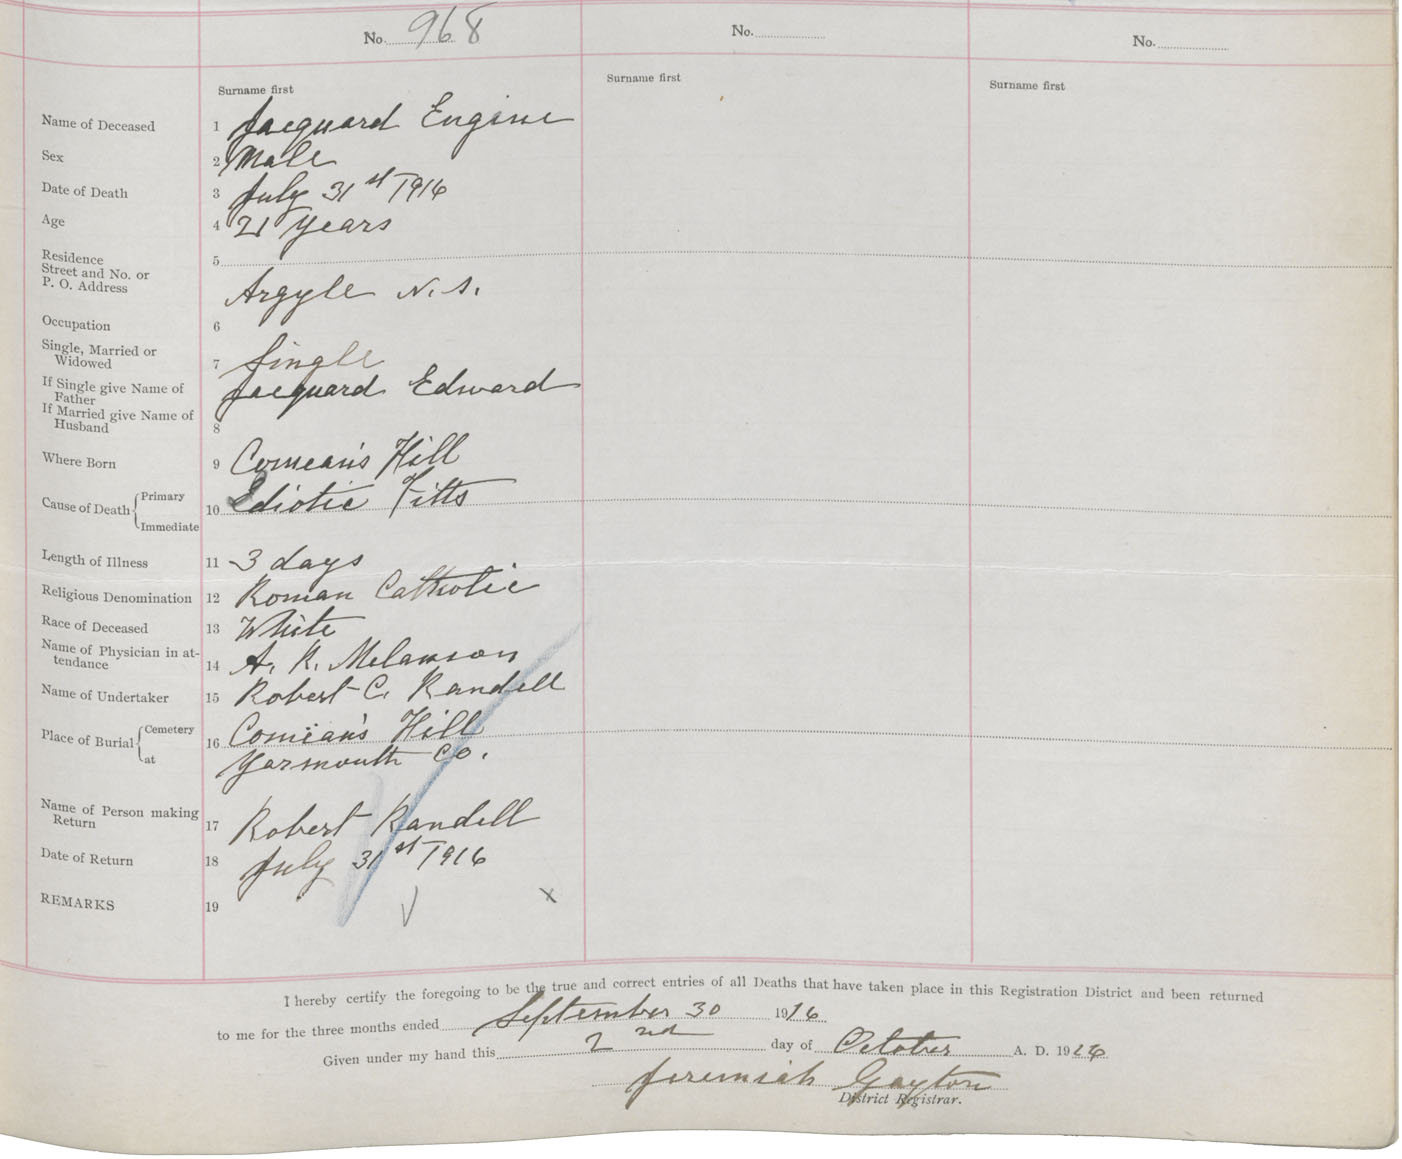 No. 968
No.
No.
Surname first
Surname first
Surname first
Name of Deceased 1 Jacquard Engine
Sex 2 Male
Date of Death 3 July 31st 1916
Age 4 21 years
Residence 5
Street and No. or
P. O. Address Argyle N.S.
Occupation 6
Single, Married or
Widowed 7 Single
If Single give Name of
Father Jacquard Edward
If Married give Name of
Husband 8
Where Born 9 Comeau's Hill
Cause of Death Primary
10 Idiotic Fitts
Immediate
Length of Illness 11 3 days
Religious Denomination 12 Roman Catholic
Race of Deceased 13 White
Name of Physician in at-
tendance 14 A. R. Melanson
Name of Undertaker 15 Robert C. Randell
Place of Burial Cemetery 16 Comeau's Hill
at Yarmouth Co.
Name of Person making
Return 17 Robert Randell
Date of Return 18 July 31st 1916
REMARKS 19
I hereby certify the foregoing to be the true and correct entries of all Deaths that have taken place in this Registration District and been returned
to me for the three months ended September 30 1916
Given under my hand this 2nd day of October A. D. 1916
Jeremiah Gayton
District Registrar.